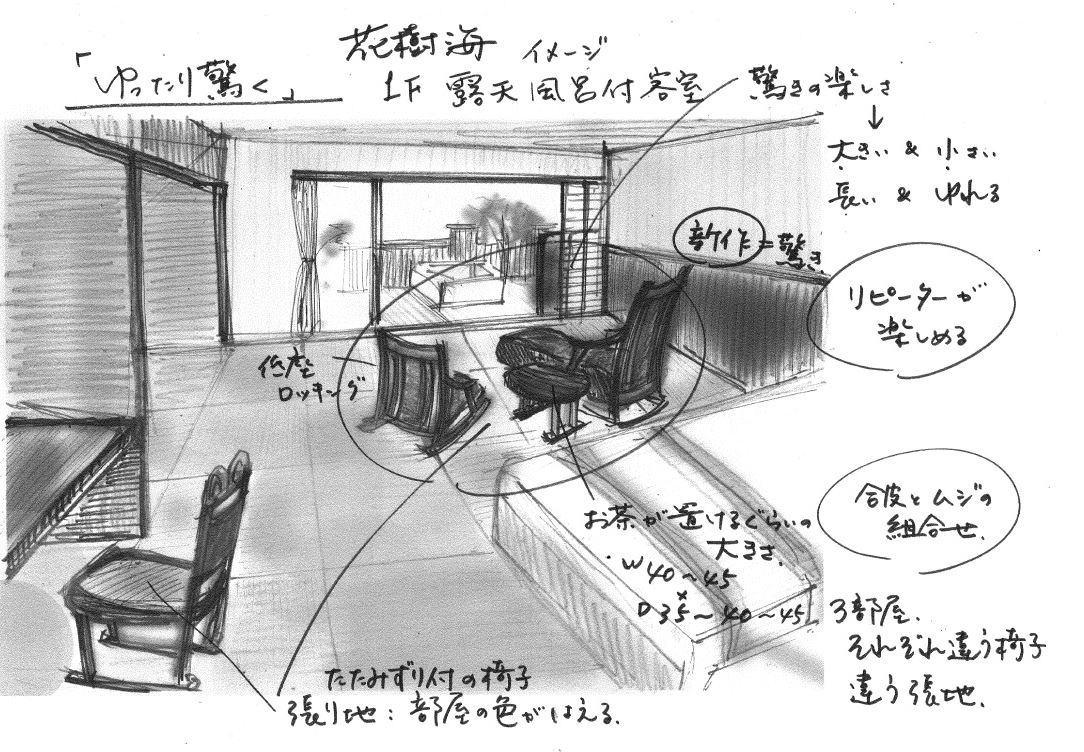 花樹海 イメージ
「ゆったり驚く」
1F 露天風呂付客室
驚きの楽しさ
↓
大きい & 小さい
長い & ゆれる
新作=驚き.
リピーターが
楽しめる
低座
ロッキング
お茶が置けるぐらいの
大きさ.
・W40~45
×
D35~40~45
合皮とムジの
組合せ.
3部屋.
それぞれ違う椅子
違う張地.
たたみずり付の椅子
張り地:部屋の色がはえる.